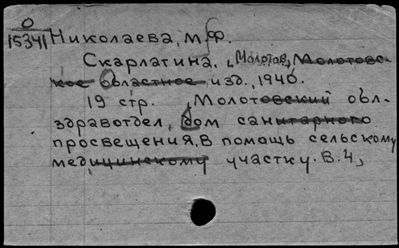 О
15341 Николаева, М.Ф.
Скарлатина. [Молотов], Молотовс-
кое областное изд., 1940.
19 стр. [Молотовский обл-
здравотдел, Дом санитарного
просвещения, В помощь сельскому
медицинскому участку. В. 4]